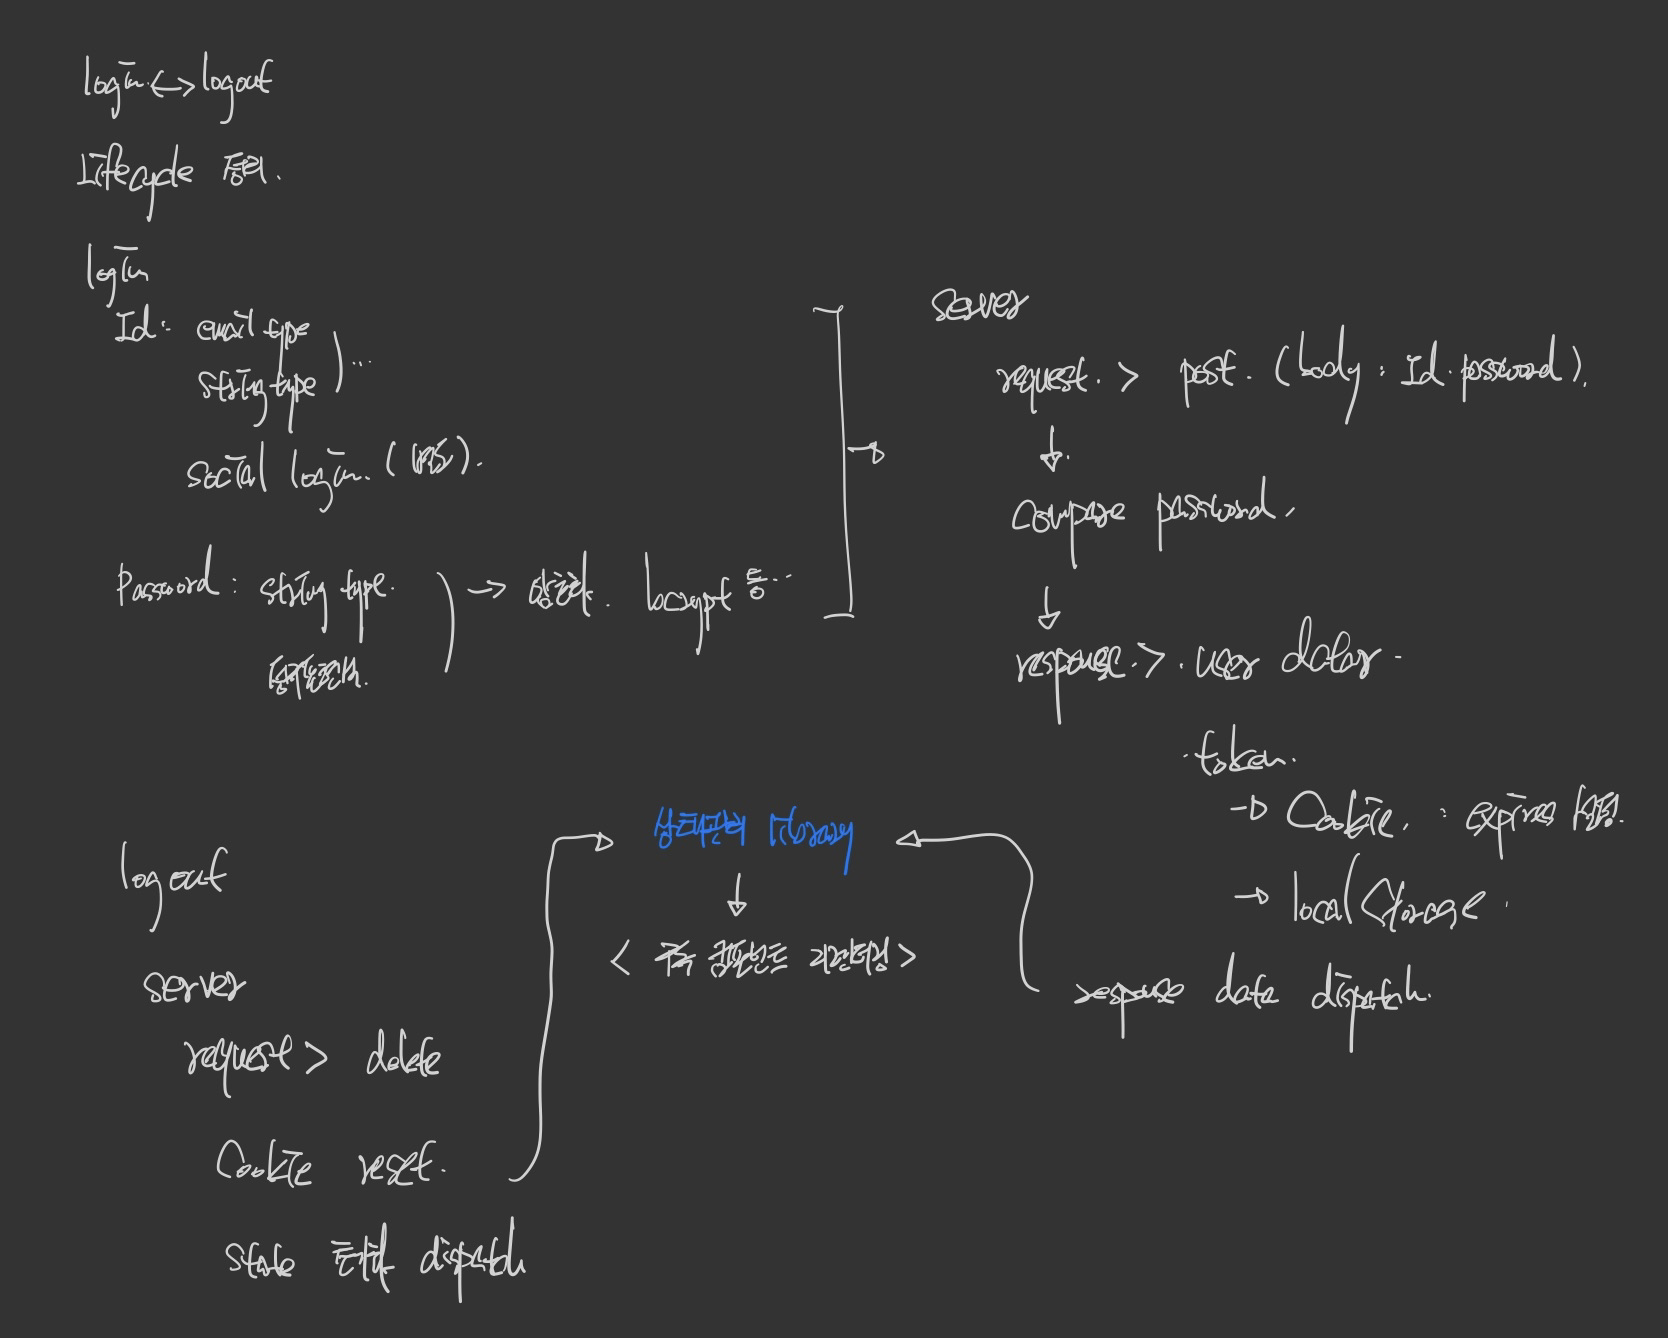 login <-> logout
Lifecycle
login
Id : email type
string type ) ...
social login. (별도).
Password : string type.
→ 암호화. bcrypt 등...
server
request. > post. (body : Id. password).
↓
compare password.
↓
response. > . user data
. token.
→ Cookie. : expires
→ localStorage.
response data dispatch.
상태관리 library
↓
< 구독 컴포넌트 리렌더링 >
logout
server
request > delete
Cookie reset.
state dispatch